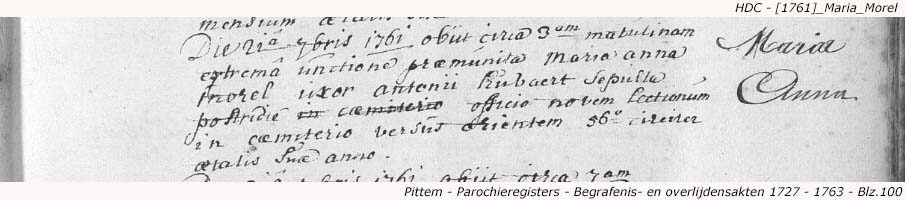 HDC - [1761]_Maria_Morel
mensium ætatis suæ
Die 21â 7bris 1761 obiit circa 3am matutinam
extremâ unctione præmunita maria anna
morel uxor antonii hubaert sepulta
postridie in cæmiterio officio novem lectionum
in cæmiterio versus orientem 56o circiter
ætatis suæ anno.
Mariæ
Anna
7bris 1761 obiit circa 7am
Pittem - Parochieregisters - Begrafenis- en overlijdensakten 1727 - 1763 - Blz.100